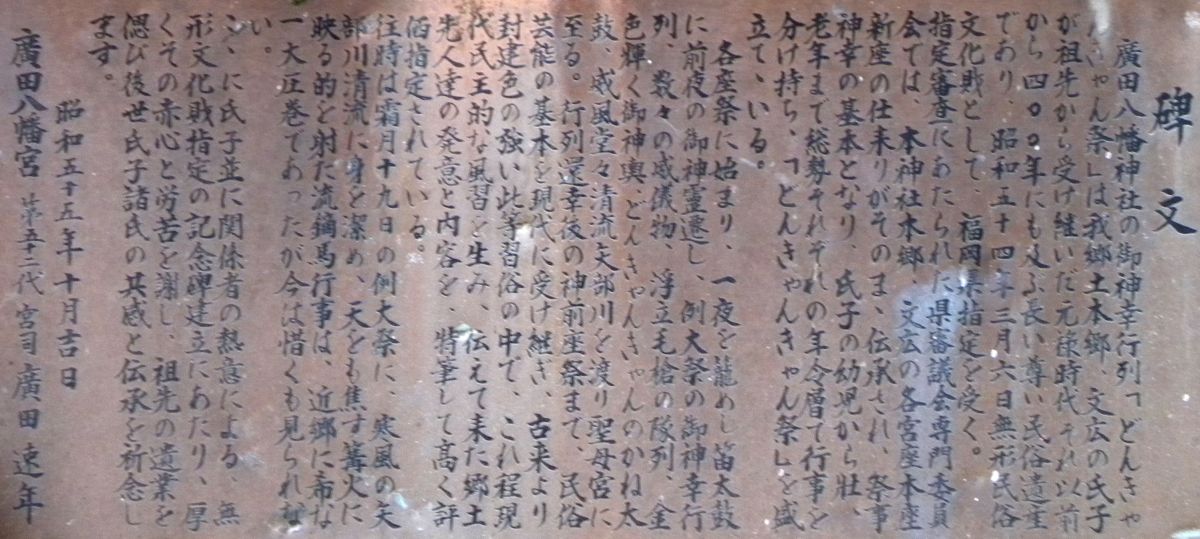 碑文
廣田八幡神社の御神幸行列「どんきゃ
んきゃん祭」は我郷土本郷、文広の氏子
が祖先から受け継いだ元禄時代それ以前
から四〇〇年にも及ぶ長い尊い民俗遺産
であり、昭和五十四年三月六日無形民俗
文化財として、福岡県指定を受く。
指定審査にあたられた県審議会専門委員
会では、本神社本郷 文広の各宮座本座
新座の仕来りがそのまゝ伝承され、祭事
神幸の基本となり 氏子の幼児から壮、
老年まで総勢それぞれの年令層で行事を
分け持ち、「どんきゃんきゃん祭」を盛
立てゝいる。
各座祭に始まり、一夜を籠めし笛太鼓
に前夜の御神霊遷し、例大祭の御神幸行
列、数々の威儀物、浮立毛槍の隊列、金
色輝く御神輿どんきゃんきゃんのかね太
鼓、威風堂々清流矢部川を渡り聖母宮に
至る。行列還幸後の神前座祭まで、民俗
芸能の基本を現代に受け継き、古来より
封建色の強い此等習俗の中で、これ程現
代民主的な風習を生み、伝えて来た郷土
先人達の発意と内容を、特筆して高く評
価指定されている。
往時は霜月十九日の例大祭に、寒風の矢
部川清流に身を潔め、天をも焦す篝火に
映る的を射た流鏑馬行事は、近郷に希な
一大圧巻であったが今は惜くも見られな
い。
こゝに氏子並に関係者の熱意による、無
形文化財指定の記念碑建立にあたり、厚
くその赤心と労苦を謝し、祖先の遺業を
偲び後世氏子諸氏の共感と伝承を祈念し
ます。
昭和五十五年十月吉日
廣田八幡宮 第五十二代 宮司 廣田速年